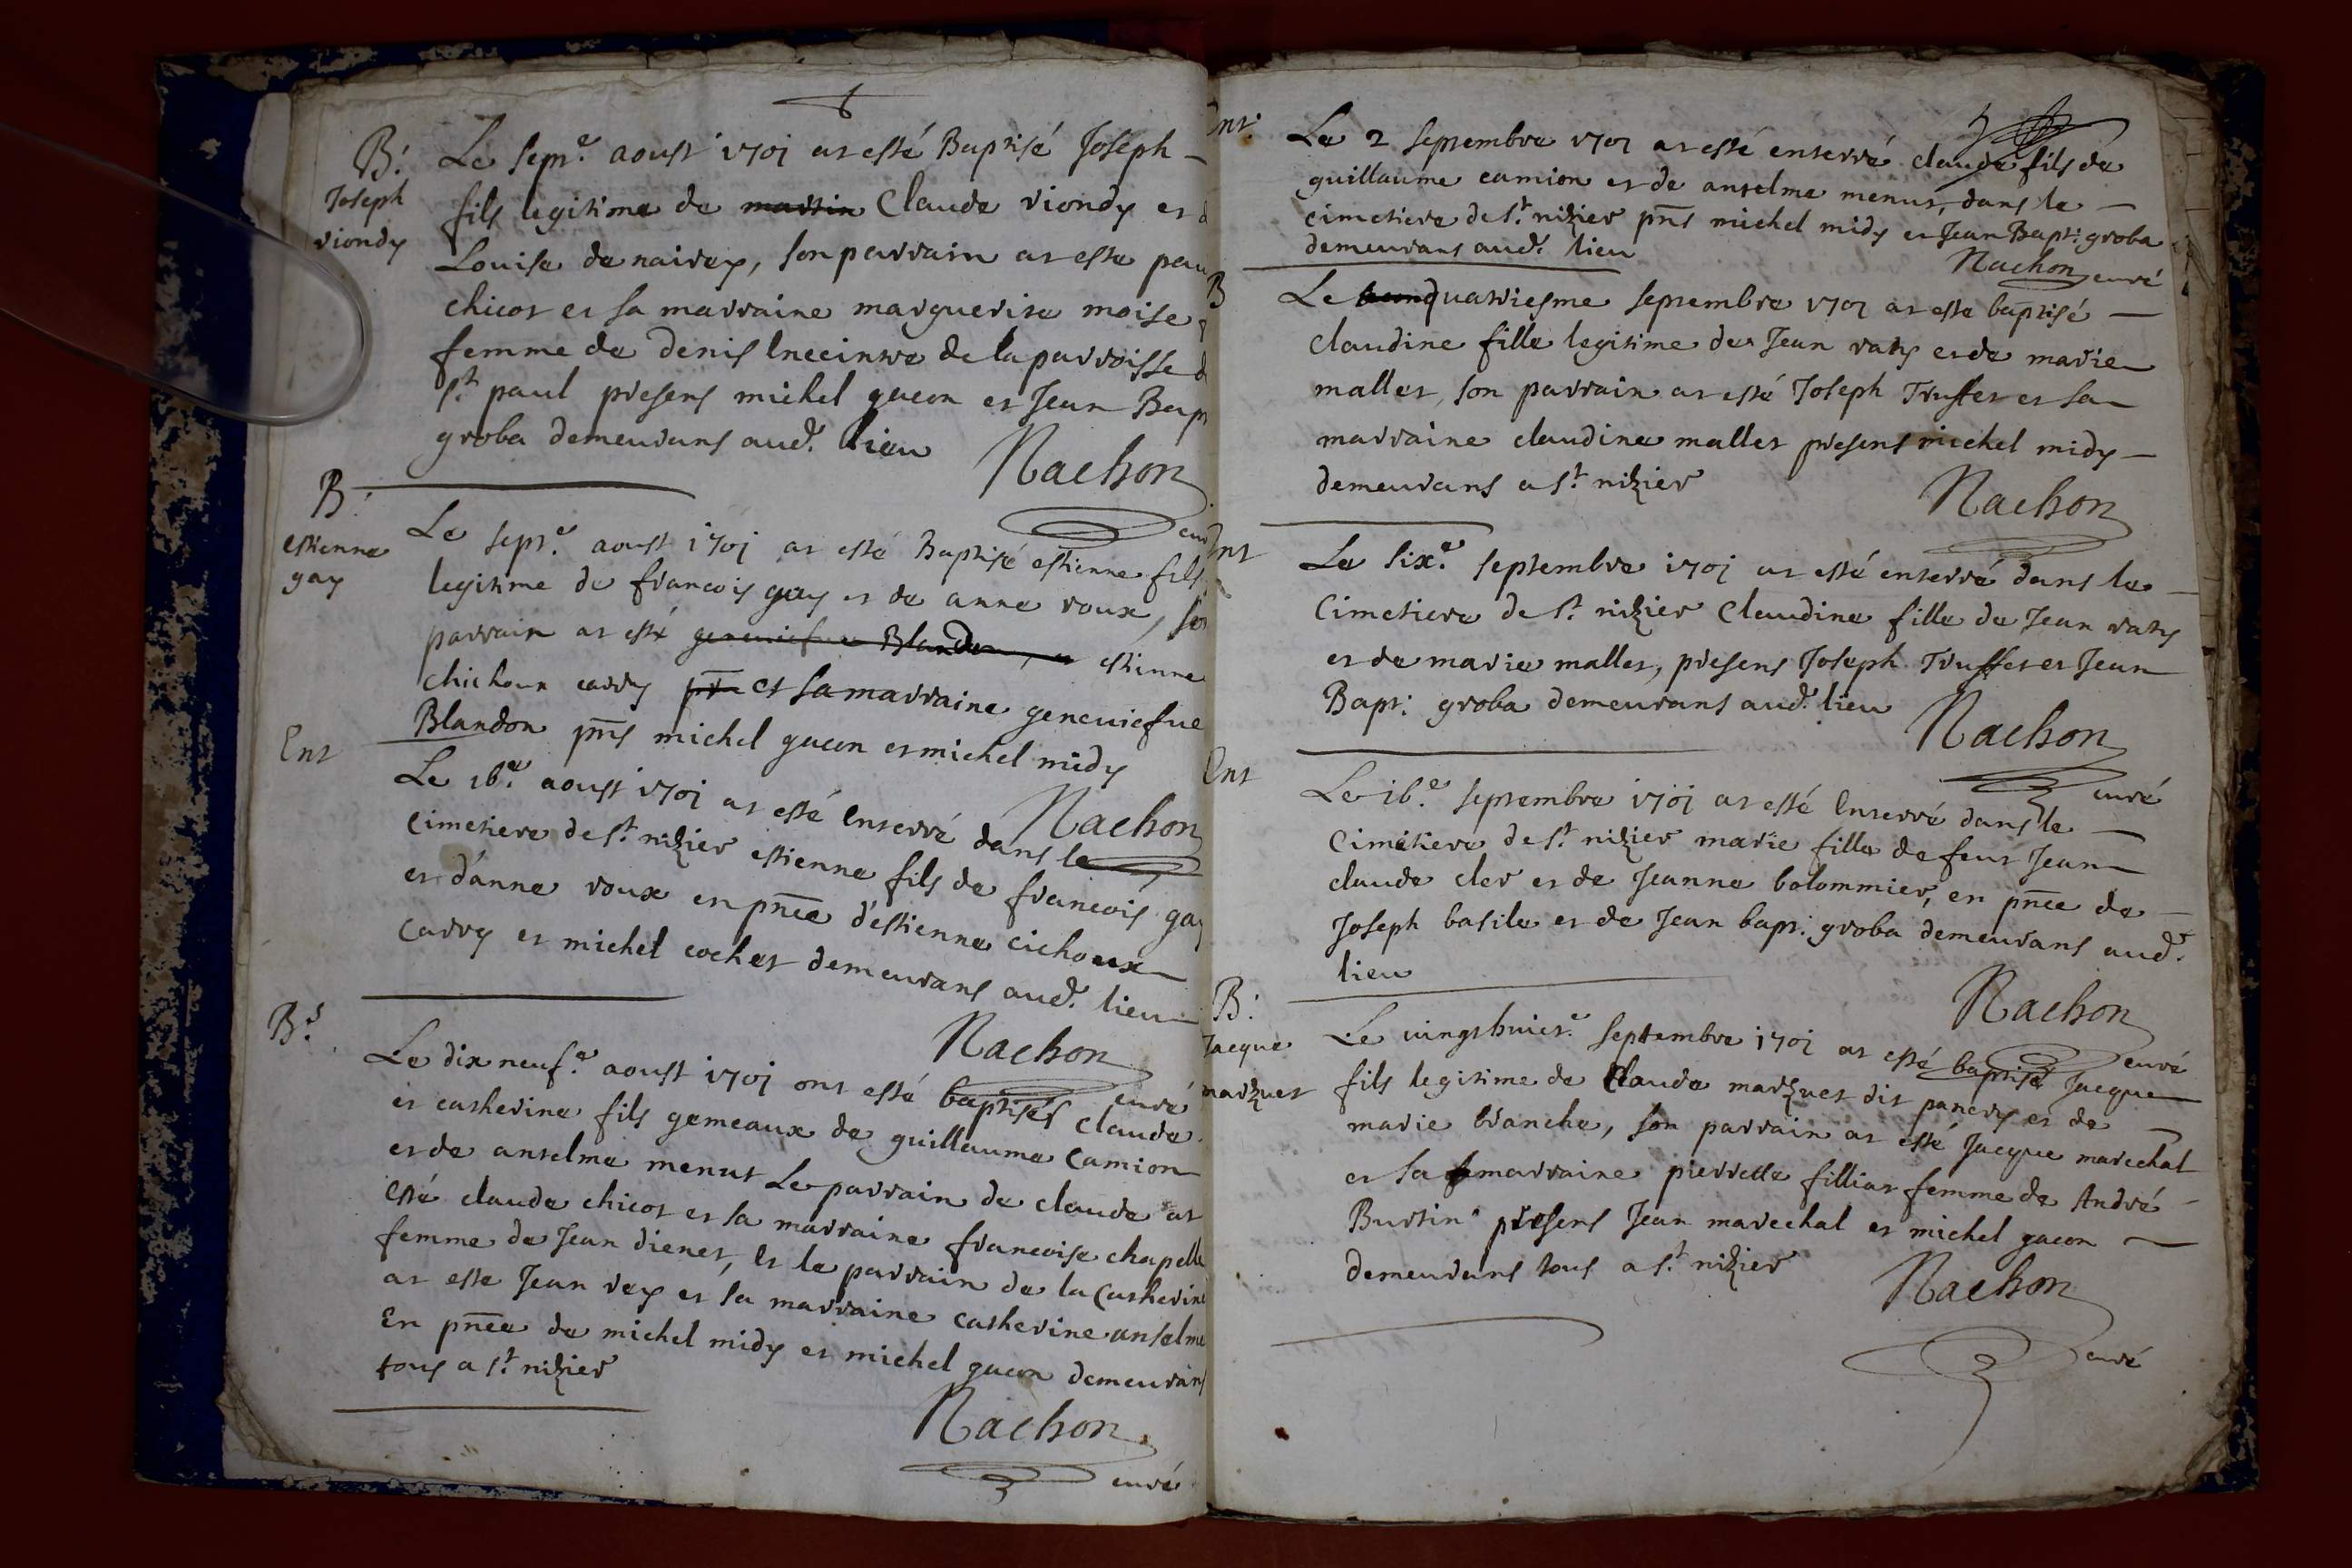 B.
Joseph
viondy
Le sept.e aoust 1701 at esté Baptisé Joseph
fils legitime de martin Claude viondy et
Louise de nairey, son parrain at esté
chicot et sa marraine marguerite moise
femme de denis Enceintre de la parroisse
st paul presens michel gacon et Jean Bap
groba demeurans aud. lieu
Nachon
B.
estienne
gay
Le sept.e aoust 1701 at esté Baptisé estienne fils
legitime de francois gay et de anne roux,
parrain at esté geneuiefue Blandon, et estienne
chichoux carry et sa marraine geneuiefue
Blandon pns michel gacon et michel midy
Nachon
Ent
Le 16.e aoust 1701 at esté Enterré dans le
cimetiere de st nizier estienne fils de francois gay
et d'anne roux en pnce d'estienne cichoux
carry et michel cochet demeurans aud. lieu
Nachon
curé
B.s
Le dix neuf.e aoust 1701 ont esté baptisés claude
et catherine fils gemeaux de guillaume Camion
et de antelme menut Le parrain de claude at
esté claude chicot et sa marraine francoise chapelle
femme de Jean dienet, Et le parrain de la Catherine
at esté Jean rey et sa marraine catherine anselme
En pnce de michel midy et michel gacon demeurans
tous a st nizier
Nachon
curé
Ent.
Le 2 septembre 1701 at esté enterré claude fils de
guillaume camion et de antelme menut, dans le
cimetiere de st nizier pns michel midy et Jean Bapt. groba
demeurans aud. lieu
Nachon curé
B
Le quatriesme septembre 1701 at esté baptisé
claudine fille legitime de Jean raty et de marie
mallet, son parrain at esté Joseph Truffet et sa
marraine claudine mallet presens michel midy
demeurans a st nizier
Nachon
Ent
Le six.e septembre 1701 at esté enterré dans le
Cimetiere de st nizier Claudine fille de Jean raty
et de marie mallet, presens Joseph Truffet et Jean
Bapt. groba demeurans aud. lieu
Nachon
curé
Ent
Le 16.e septembre 1701 at esté Enterré dans le
Cimetiere de st nizier marie fille de feut Jean
claude cler et de Jeanne bolommier, en pnce de
Joseph basile et de Jean bapt. groba demeurans aud.
lieu
Nachon
curé
B.
Jacque
marquet
Le uingt huict.e septembre 1701 at esté baptisé Jacque
fils legitime de Claude marquet dit pancry et de
marie branche, son parrain at esté Jacque marechal
et sa marraine pierrette filliat femme de André
Burtin presens Jean marechal et michel gacon
demeurans tous a st nizier
Nachon
curé